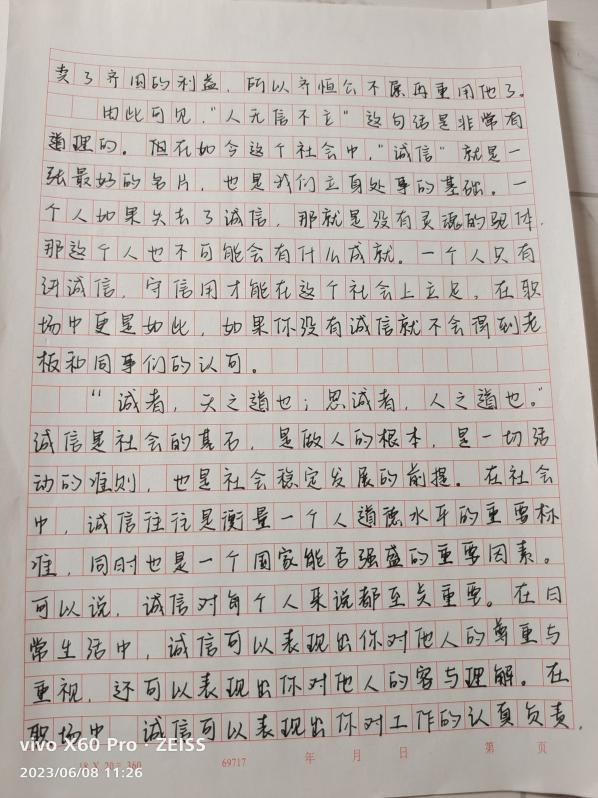 卖了齐国的利益，所以齐恒公不愿再重用他了。
由此可见，“人无信不立”这句话是非常有
道理的。但在如今这个社会中，“诚信”就是一
张最好的名片，也是我们立身处事的基础。一
个人如果失去了诚信，那就是没有灵魂的躯体，
那这个人也不可能会有什么成就。一个人只有
讲诚信，守信用才能在这个社会上立足，在职
场中更是如此，如果你没有诚信就不会得到老
板和同事们的认可。
“诚者，天之道也；思诚者，人之道也。”
诚信是社会的基石，是做人的根本，是一切活
动的准则，也是社会稳定发展的前提。在社会
中，诚信往往是衡量一个人道德水平的重要标
准，同时也是一个国家能否强盛的重要因素。
可以说，诚信对每个人来说都至关重要。在日
常生活中，诚信可以表现出你对他人的尊重与
重视，还可以表现出你对他人的客与理解。在
职场中，诚信可以表现出你对工作的认真负责，
vivo X60 Pro · ZEISS
2023/06/08 11:26
18 X 20 = 360
69717
年 月 日
第 页